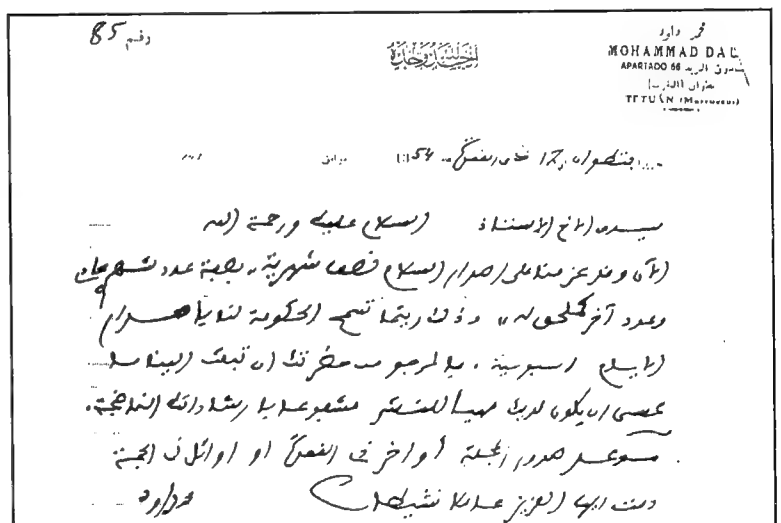 رقم 85
الحمد لله وحده
محمد داود
MOHAMMAD DAU
APARTADO 66 صندوق البريد
تطوان (المغرب)
TETUAN (Marruecos)
بتطوان 17 ذي القعدة 1354 موافق
سيدي الأخ الأستاذ السلام عليك ورحمة الله
الآن وقد عزمنا على إصدار السلام نصف شهرية، بصفة عدد شهري
وعدد آخر كملحق له، وذلك ريثما تسمح الحكومة لنا بإصدار
أسبوعية، فالمرجو من حضرتك أن تبعث إلينا بما
عسى أن يكون لديك مهيأ للنشر مشفوعا بإرشاداتك الناضجة.
موعد صدور المجلة أواخر ذي القعدة أو أوائل ذي الحجة
دمت أيها العزيز عاملا نشيطا محمد داود